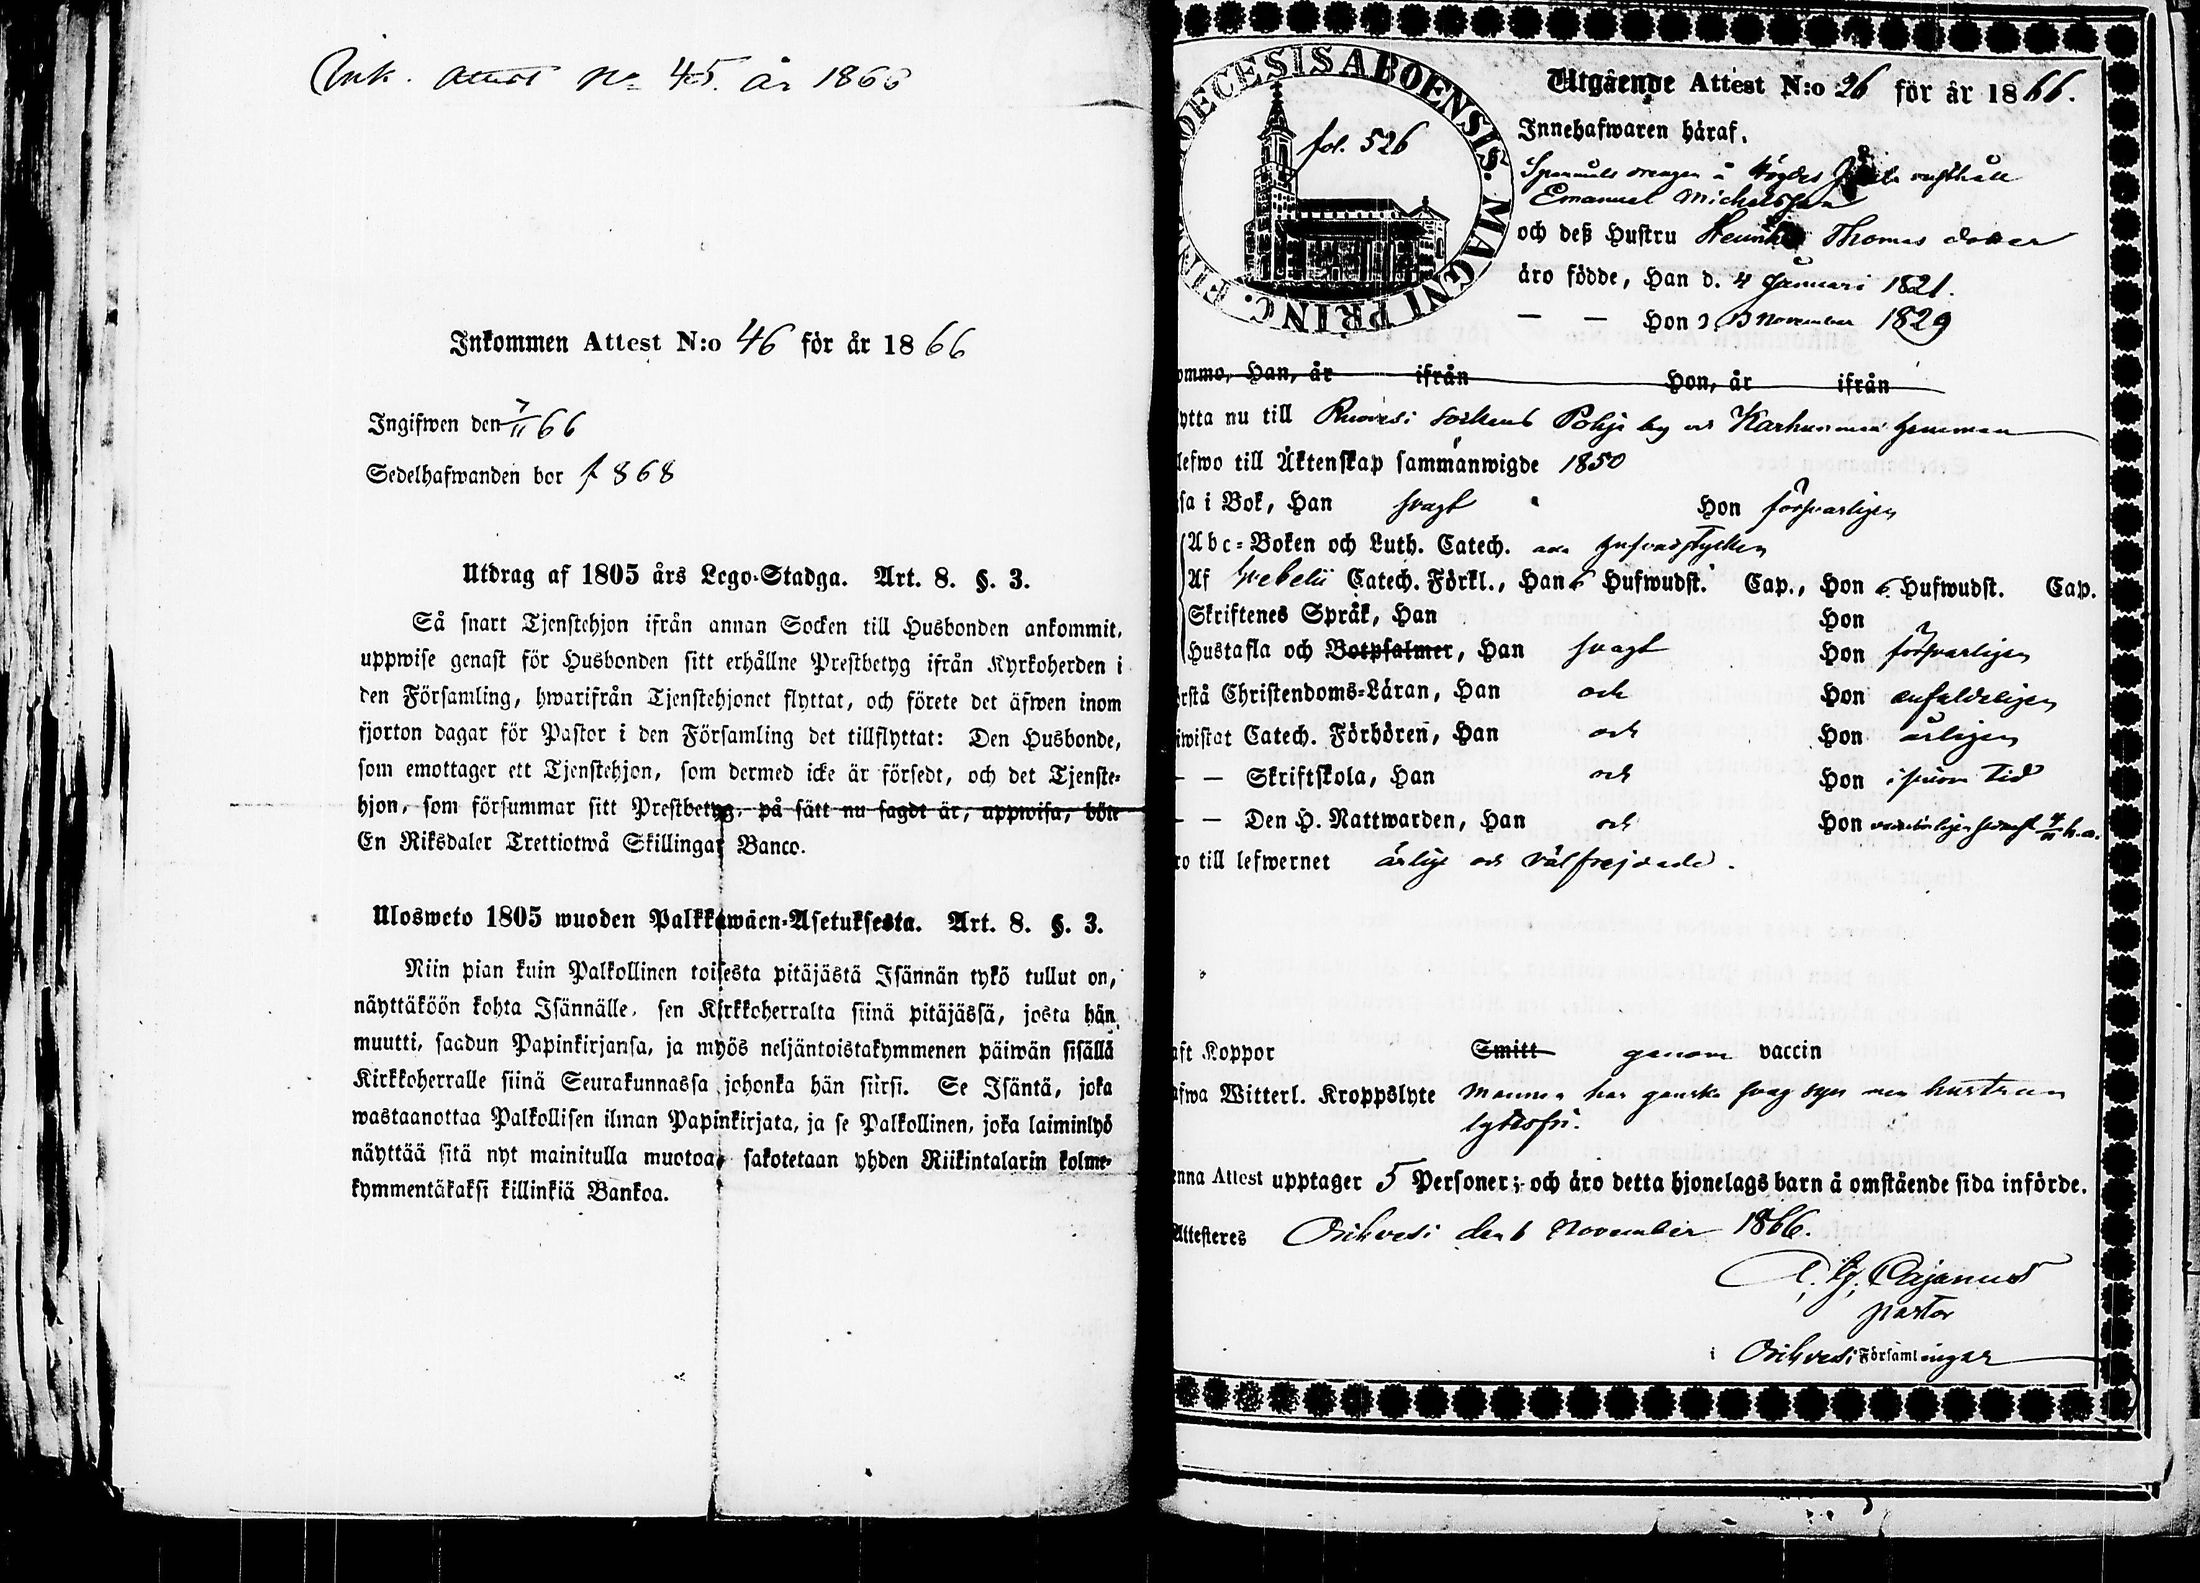 Ink. attest No 45. år 1866
Inkommen Attest N:o 46 för år 1866
Ingifwen den 7/11 66
Sedelhafwanden bor f 868
Utdrag af 1805 års Lego-Stadga. Art. 8. §. 3.
Så snart Tjenstehjon ifrån annan Socken till Husbonden ankommit,
uppwise genast för Husbonden sitt erhållne Prestbetyg ifrån Kyrkoherden i
den Församling, hwarifrån Tjenstehjonet flyttat, och förete det äfwen inom
fjorton dagar för Pastor i den Församling det tillflyttat: Den Husbonde,
som emottager ett Tjenstehjon, som dermed icke är försedt, och det Tjenste-
hjon, som försummar sitt Prestbetyg, på sätt nu sagdt är, uppwisa, böte
En Riksdaler Trettiotwå Skillingar Banco.
Ulosweto 1805 wuoden Palkkawäen-Asetuksesta. Art. 8. §. 3.
Niin pian kuin Palkollinen toisesta pitäjästä Isännän tykö tullut on,
näyttäköön kohta Isännälle, sen Kirkkoherralta siinä pitäjässä, josta hän
muutti, saadun Papinkirjansa, ja myös neljäntoistakymmenen päiwän sisällä
Kirkkoherralle siinä Seurakunnassa johonka hän siirsi. Se Isäntä, joka
wastaanottaa Palkollisen ilman Papinkirjata, ja se Palkollinen, joka laiminlyö
näyttää sitä nyt mainitulla muotoa, sakotetaan yhden Riikintalarin kolme-
kymmentäkaksi killinkiä Bankoa.
OECESIS ABOENSIS. MAGNI PRINC. FI
fol. 526
Utgående Attest N:o 26 för år 1866.
Innehafwaren häraf,
Spannmåls drengen å rusthåll
Emanuel Michelsson
och deß Hustru Thomas dotter
äro födde, Han d. 4 Januari 1821.
— — Hon d. 13 November 1829
ommo, Han, år ifrån Hon, år ifrån
ytta nu till Ruovesi sockens Pohja by och hemman
lefwo till Äktenskap sammanwigde 1850
sa i Bok, Han svagt Hon försvarligen
Abc-Boken och Luth. Catech. hufvudstycken
Af Svebelii Catech. Förkl., Han 6 Hufwudst. Cap., Hon 6 Hufwudst. Cap.
Skriftenes Språk, Han Hon
Hustafla och Botpsalmer, Han svagt Hon försvarligen
rstå Christendoms-Läran, Han och Hon enfaldeligen
iwistat Catech. Förhören, Han och Hon årligen
— — Skriftskola, Han och Hon i sinom tid
— — Den H. Nattwarden, Han och Hon senast 4/11 h. a.
ro till lefwernet ärlige och välfrejdade.
aft Koppor Smitt genom vaccin
afwa Witterl. Kroppslyte mannen har ganska svag syn men hustrun
lytesfri.
enna Attest upptager 5 Personer; och äro detta hjonelags barn å omstående sida införde.
Attesteres Orihvesi den 6 November 1866.
Cajanus
pastor
i Orihvesi Församlingar